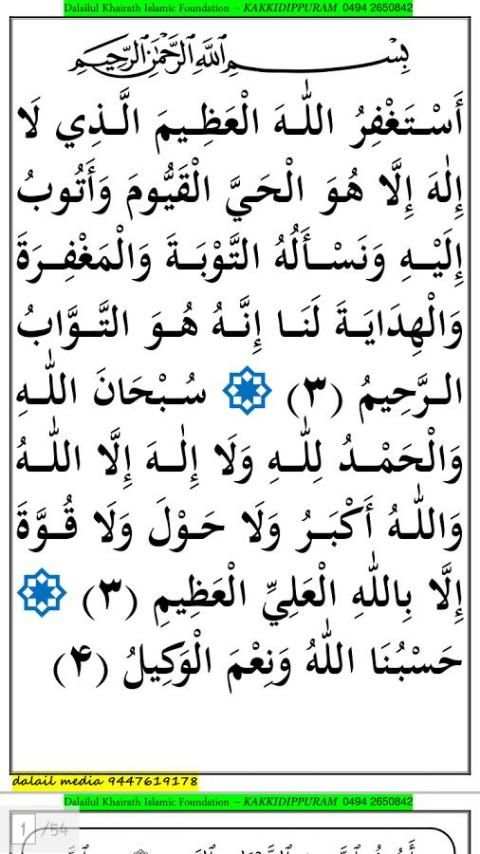 Dalailul Khairath Islamic Foundation – KAKKIDIPPURAM 0494 2650842
بِسْمِ اللَّهِ الرَّحْمَٰنِ الرَّحِيمِ
أَسْتَغْفِرُ اللّٰهَ الْعَظِيمَ الَّذِي لَا
إِلٰهَ إِلَّا هُوَ الْحَيَّ الْقَيُّومَ وَأَتُوبُ
إِلَيْهِ وَنَسْأَلُهُ التَّوْبَةَ وَالْمَغْفِرَةَ
وَالْهِدَايَةَ لَنَا إِنَّهُ هُوَ التَّوَّابُ
الرَّحِيمُ (٣) سُبْحَانَ اللّٰهِ
وَالْحَمْدُ لِلّٰهِ وَلَا إِلٰهَ إِلَّا اللّٰهُ
وَاللّٰهُ أَكْبَرُ وَلَا حَوْلَ وَلَا قُوَّةَ
إِلَّا بِاللّٰهِ الْعَلِيِّ الْعَظِيمِ (٣)
حَسْبُنَا اللّٰهُ وَنِعْمَ الْوَكِيلُ (۴)
dalail media 9447619178
Dalailul Khairath Islamic Foundation – KAKKIDIPPURAM 0494 2650842
1 /54